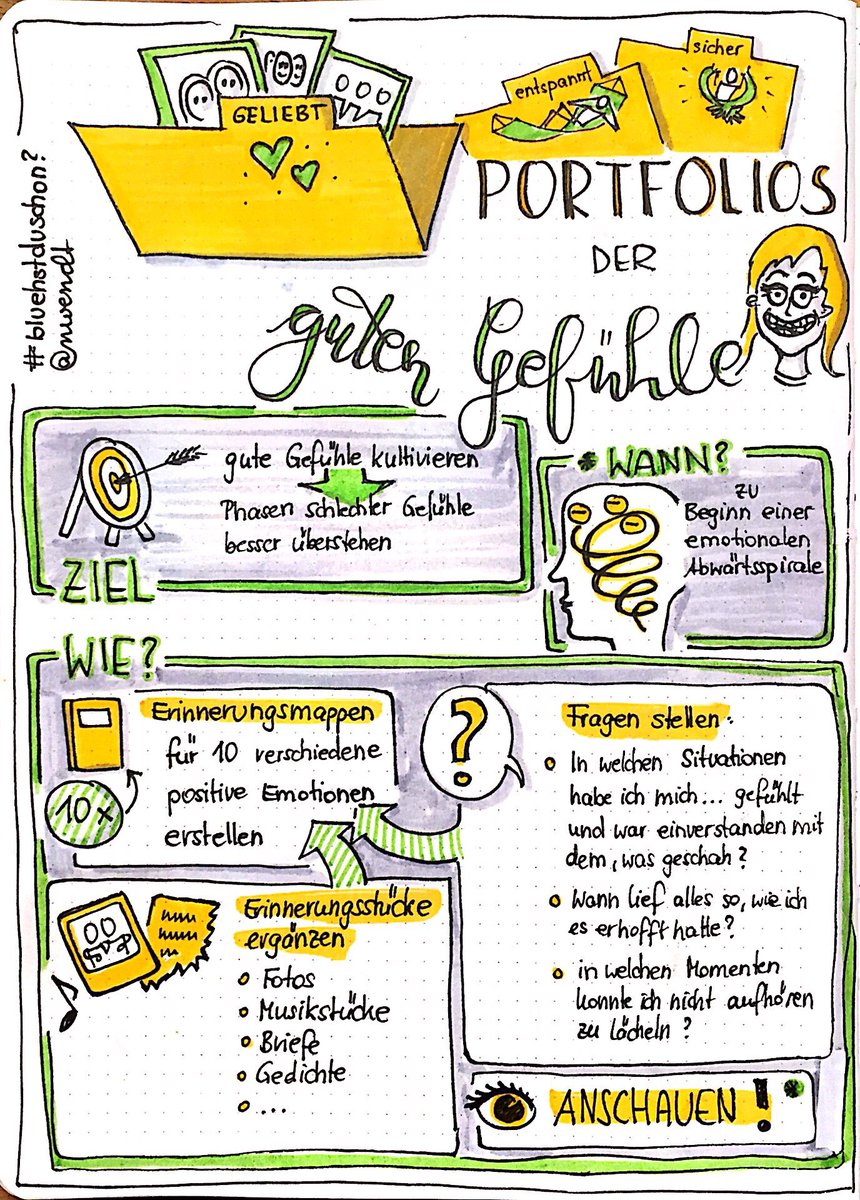 GELIEBT
entspannt
sicher
#bluehstduschon?
@nwendt
PORTFOLIOS
DER
guten Gefühle
gute Gefühle kultivieren
Phasen schlechter Gefühle
besser überstehen
ZIEL
* WANN?
zu
Beginn einer
emotionalen
Abwärtsspirale
WIE?
Erinnerungsmappen
für 10 verschiedene
positive Emotionen
erstellen
10x
?
Fragen stellen:
In welchen Situationen
habe ich mich... gefühlt
und war einverstanden mit
dem, was geschah?
Wann lief alles so, wie ich
es erhofft hatte?
in welchen Momenten
konnte ich nicht aufhören
zu lächeln?
Erinnerungsstücke
ergänzen
Fotos
Musikstücke
Briefe
Gedichte
...
ANSCHAUEN! *